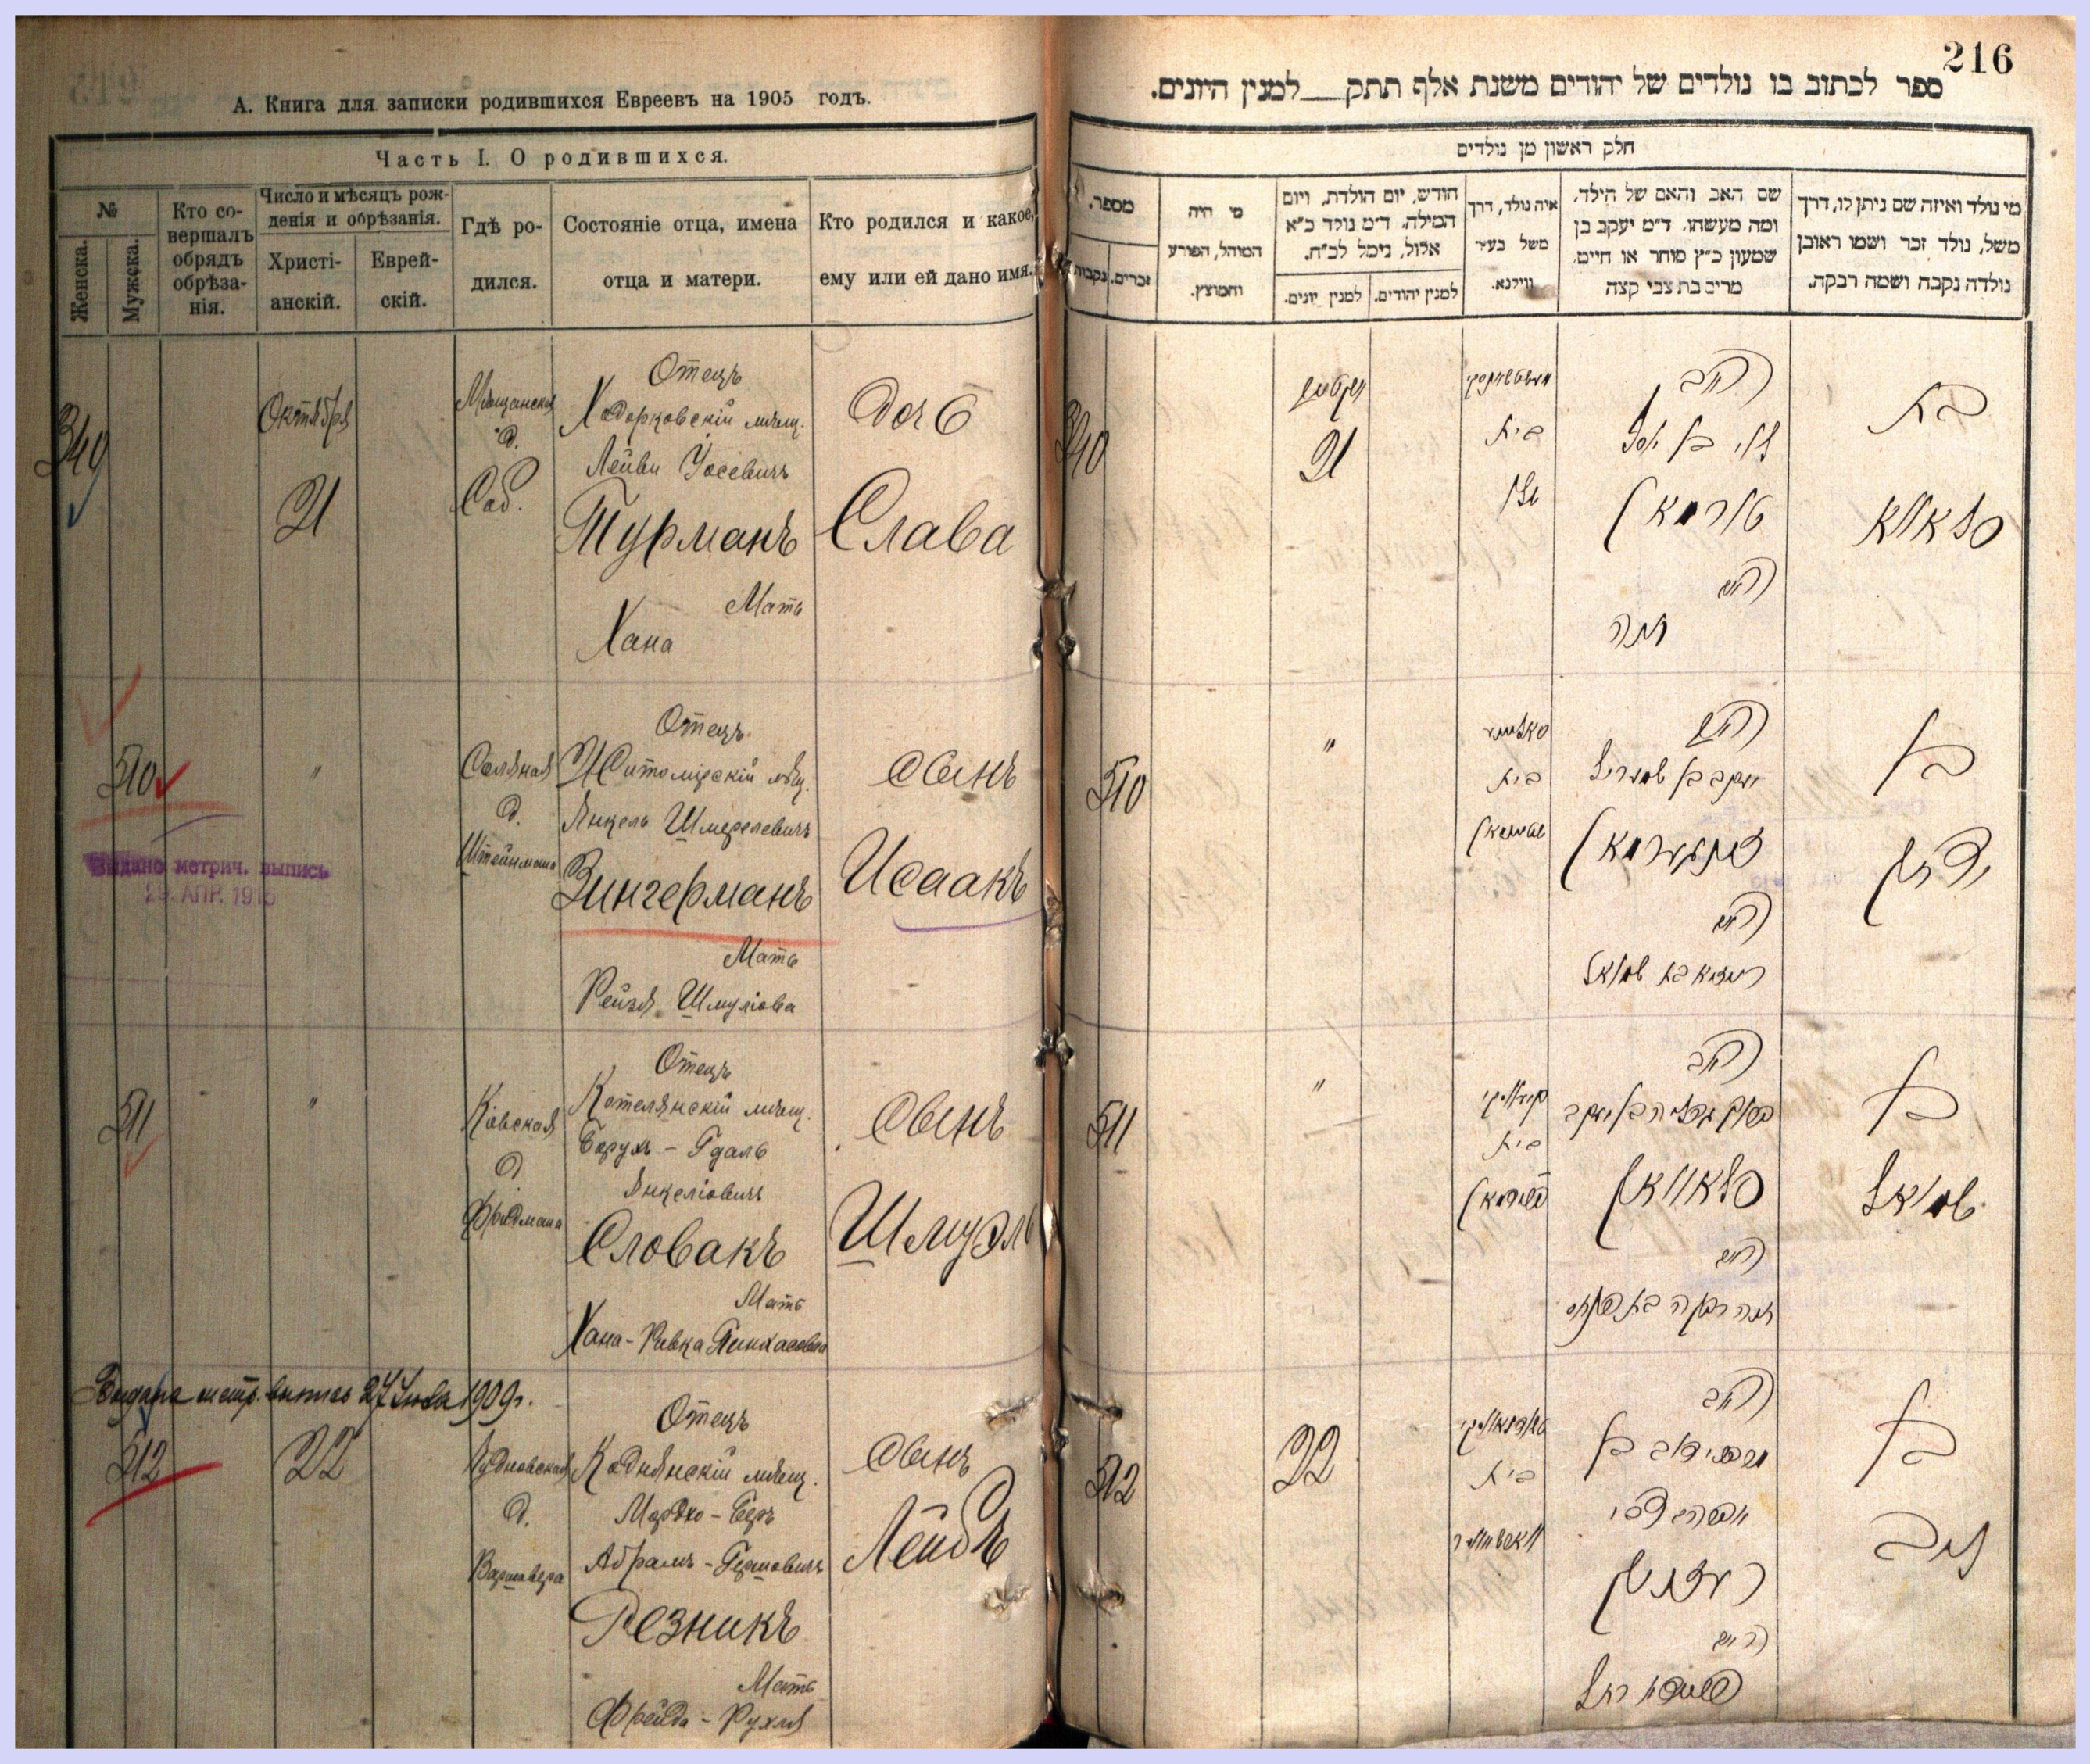 А. Книга для записки родившихся Евреевъ на 1905 годъ.
Часть I. О родившихся.
№
Женска.
Мужска.
Кто со-
вершалъ
обрядъ
обрѣза-
нія.
Число и мѣсяцъ рож-
денія и обрѣзанія.
Христі-
анскій.
Еврей-
скій.
Гдѣ ро-
дился.
Состояніе отца, имена
отца и матери.
Кто родился и какое,
ему или ей дано имя.
340
Октября
21
Мѣщанская
д.
Сад.
Отецъ
Ходорковскій мѣщ.
Лейви Іосевичъ
Турманъ
Мать
Хана
Дочь
Слава
510
"
Соляная
д.
Штейнмана
Отецъ
Житомірскій мѣщ.
Янкель Шмерелевичъ
Зингерманъ
Мать
Рейзя Шмуліова
Сынъ
Исаакъ
Выдано метрич. выпись
29. АПР. 1915
511
"
Кіевская
д.
Фридмана
Отецъ
Котелянскій мѣщ.
Борухъ - Гдаль
Янкеліовичъ
Словакъ
Мать
Хана - Ривка Пинхасовна
Сынъ
Шмуэль
Выдана метр. выпись 27 1909г.
512
22
Чудновская
д.
Варшавера
Отецъ
Коднянскій мѣщ.
Мордко - Беръ
Абрамъ - Гершовичъ
Резникъ
Мать
Фрейда - Рухля
Сынъ
Лейбъ
216
ספר לכתוב בו נולדים של יהודים משנת אלף תתק__למנין היונים.
חלק ראשון מן נולדים
מספר.
נקבות
זכרים.
מי היה
המוהל, הפורע
והמוצץ.
חודש, יום הולדת, ויום
המילה. ד"מ נולד כ"א
אלול, נימל לכ"ח.
למנין יונים.
למנין יהודים.
איה נולד, דרך
משל בעיר
ווילנא.
שם האב והאם של הילד,
ומה מעשהו. ד"מ יעקב בן
שמעון כ"ץ סוחר או חיים.
מריב בת צבי קצה
מי נולד ואיזה שם ניתן לו, דרך
משל, נולד זכר ושמו ראובן
נולדה נקבה ושמה רבקה.
340
21
בית
האב
לוי בן יוסף
טורמאן
האם
חנה
בת
סלאווא
510
"
בית
יעקב בן שמעריל
זינגערמאן
האם
רייזא בת שמואל
בן
יצחק
511
"
בית
פרידמאן
האב
ברוך גדליה בן יעקב
סלאוואק
האם
חנה רבקה בת פנחס
בן
שמואל
512
22
בית
ווארשאווער
האב
מרדכי דוב בן
אברהם צבי
רעזניק
האם
פריידא רחל
בן
ליב